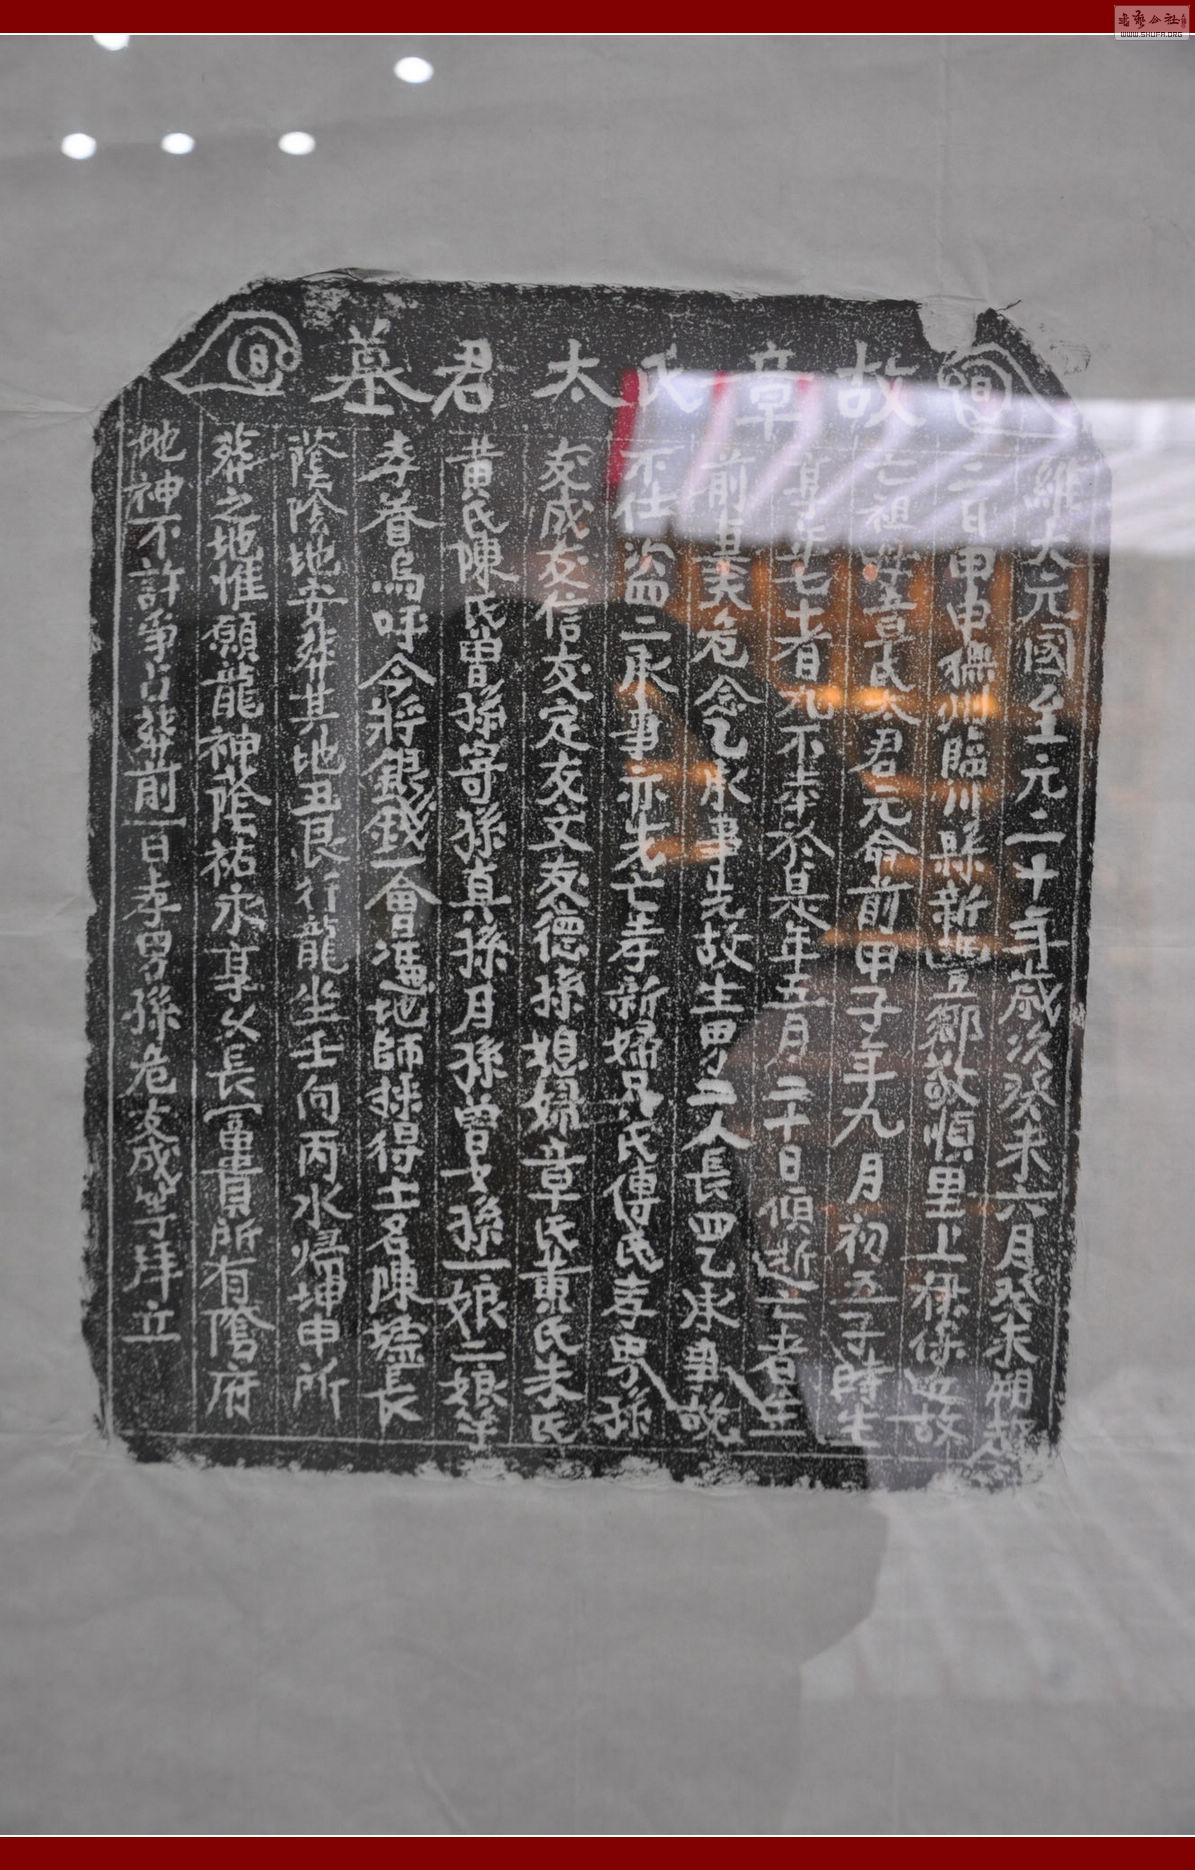 故章氏太君墓
日
月
維大元國至元二十年歲次癸未六月癸未朔越
二日甲申撫州臨川縣新豐鄉敬順里上保居故
亡祖母章氏太君元命前甲子年九月初五子時生
享年七十者九不幸於是年五月二十日傾逝亡者生
前事夫危念乙承事先故生男二人長四乙承事
不仕 二承事亦先亡孝新婦 氏傅氏孝男孫
友成友信友定友文友德孫媳婦章氏黃氏朱氏
黃氏陳氏曾孫寄孫真孫月孫曾女孫一娘二娘等
孝眷嗚呼今將銀錢一會馮地師採得土名陳 長
蔭陰地安葬其地丑艮行龍坐壬向丙水歸坤申所
葬之地惟願龍神蔭祐永享父長富貴所有陰府
地神不許爭占葬前一日孝男孫危友成等拜立
WWW.SHUFA.ORG